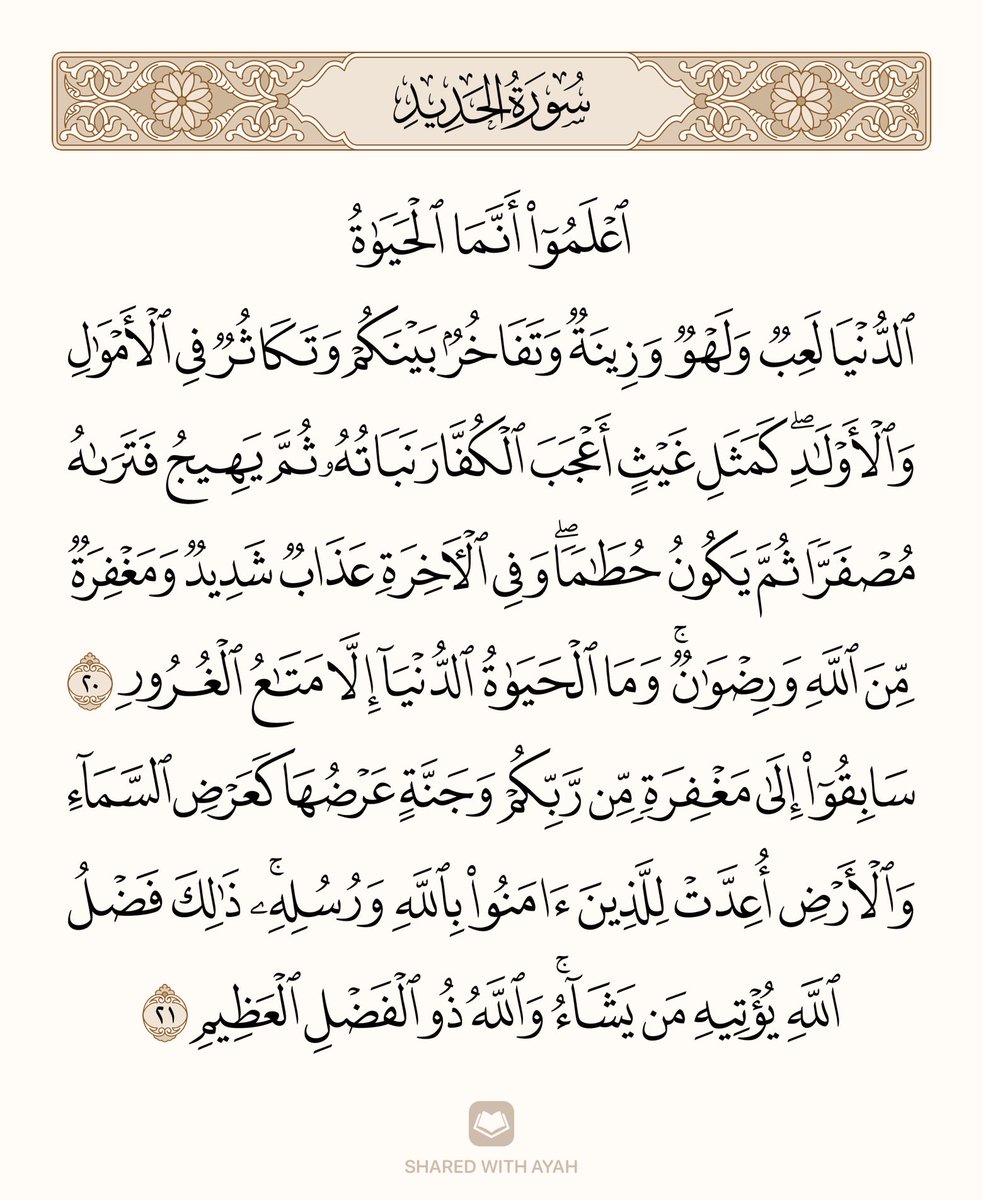 سُورَةُ الحَدِيدِ
ٱعۡلَمُوٓاْ أَنَّمَا ٱلۡحَيَوٰةُ
ٱلدُّنۡيَا لَعِبٞ وَلَهۡوٞ وَزِينَةٞ وَتَفَاخُرُۢ بَيۡنَكُمۡ وَتَكَاثُرٞ فِي ٱلۡأَمۡوَٰلِ
وَٱلۡأَوۡلَٰدِۖ كَمَثَلِ غَيۡثٍ أَعۡجَبَ ٱلۡكُفَّارَ نَبَاتُهُۥ ثُمَّ يَهِيجُ فَتَرَىٰهُ
مُصۡفَرّٗا ثُمَّ يَكُونُ حُطَٰمٗاۖ وَفِي ٱلۡأٓخِرَةِ عَذَابٞ شَدِيدٞ وَمَغۡفِرَةٞ
مِّنَ ٱللَّهِ وَرِضۡوَٰنٞۚ وَمَا ٱلۡحَيَوٰةُ ٱلدُّنۡيَآ إِلَّا مَتَٰعُ ٱلۡغُرُورِ ٢٠
سَابِقُوٓاْ إِلَىٰ مَغۡفِرَةٖ مِّن رَّبِّكُمۡ وَجَنَّةٍ عَرۡضُهَا كَعَرۡضِ ٱلسَّمَآءِ
وَٱلۡأَرۡضِ أُعِدَّتۡ لِلَّذِينَ ءَامَنُواْ بِٱللَّهِ وَرُسُلِهِۦۚ ذَٰلِكَ فَضۡلُ
ٱللَّهِ يُؤۡتِيهِ مَن يَشَآءُۚ وَٱللَّهُ ذُو ٱلۡفَضۡلِ ٱلۡعَظِيمِ ٢١
SHARED WITH AYAH